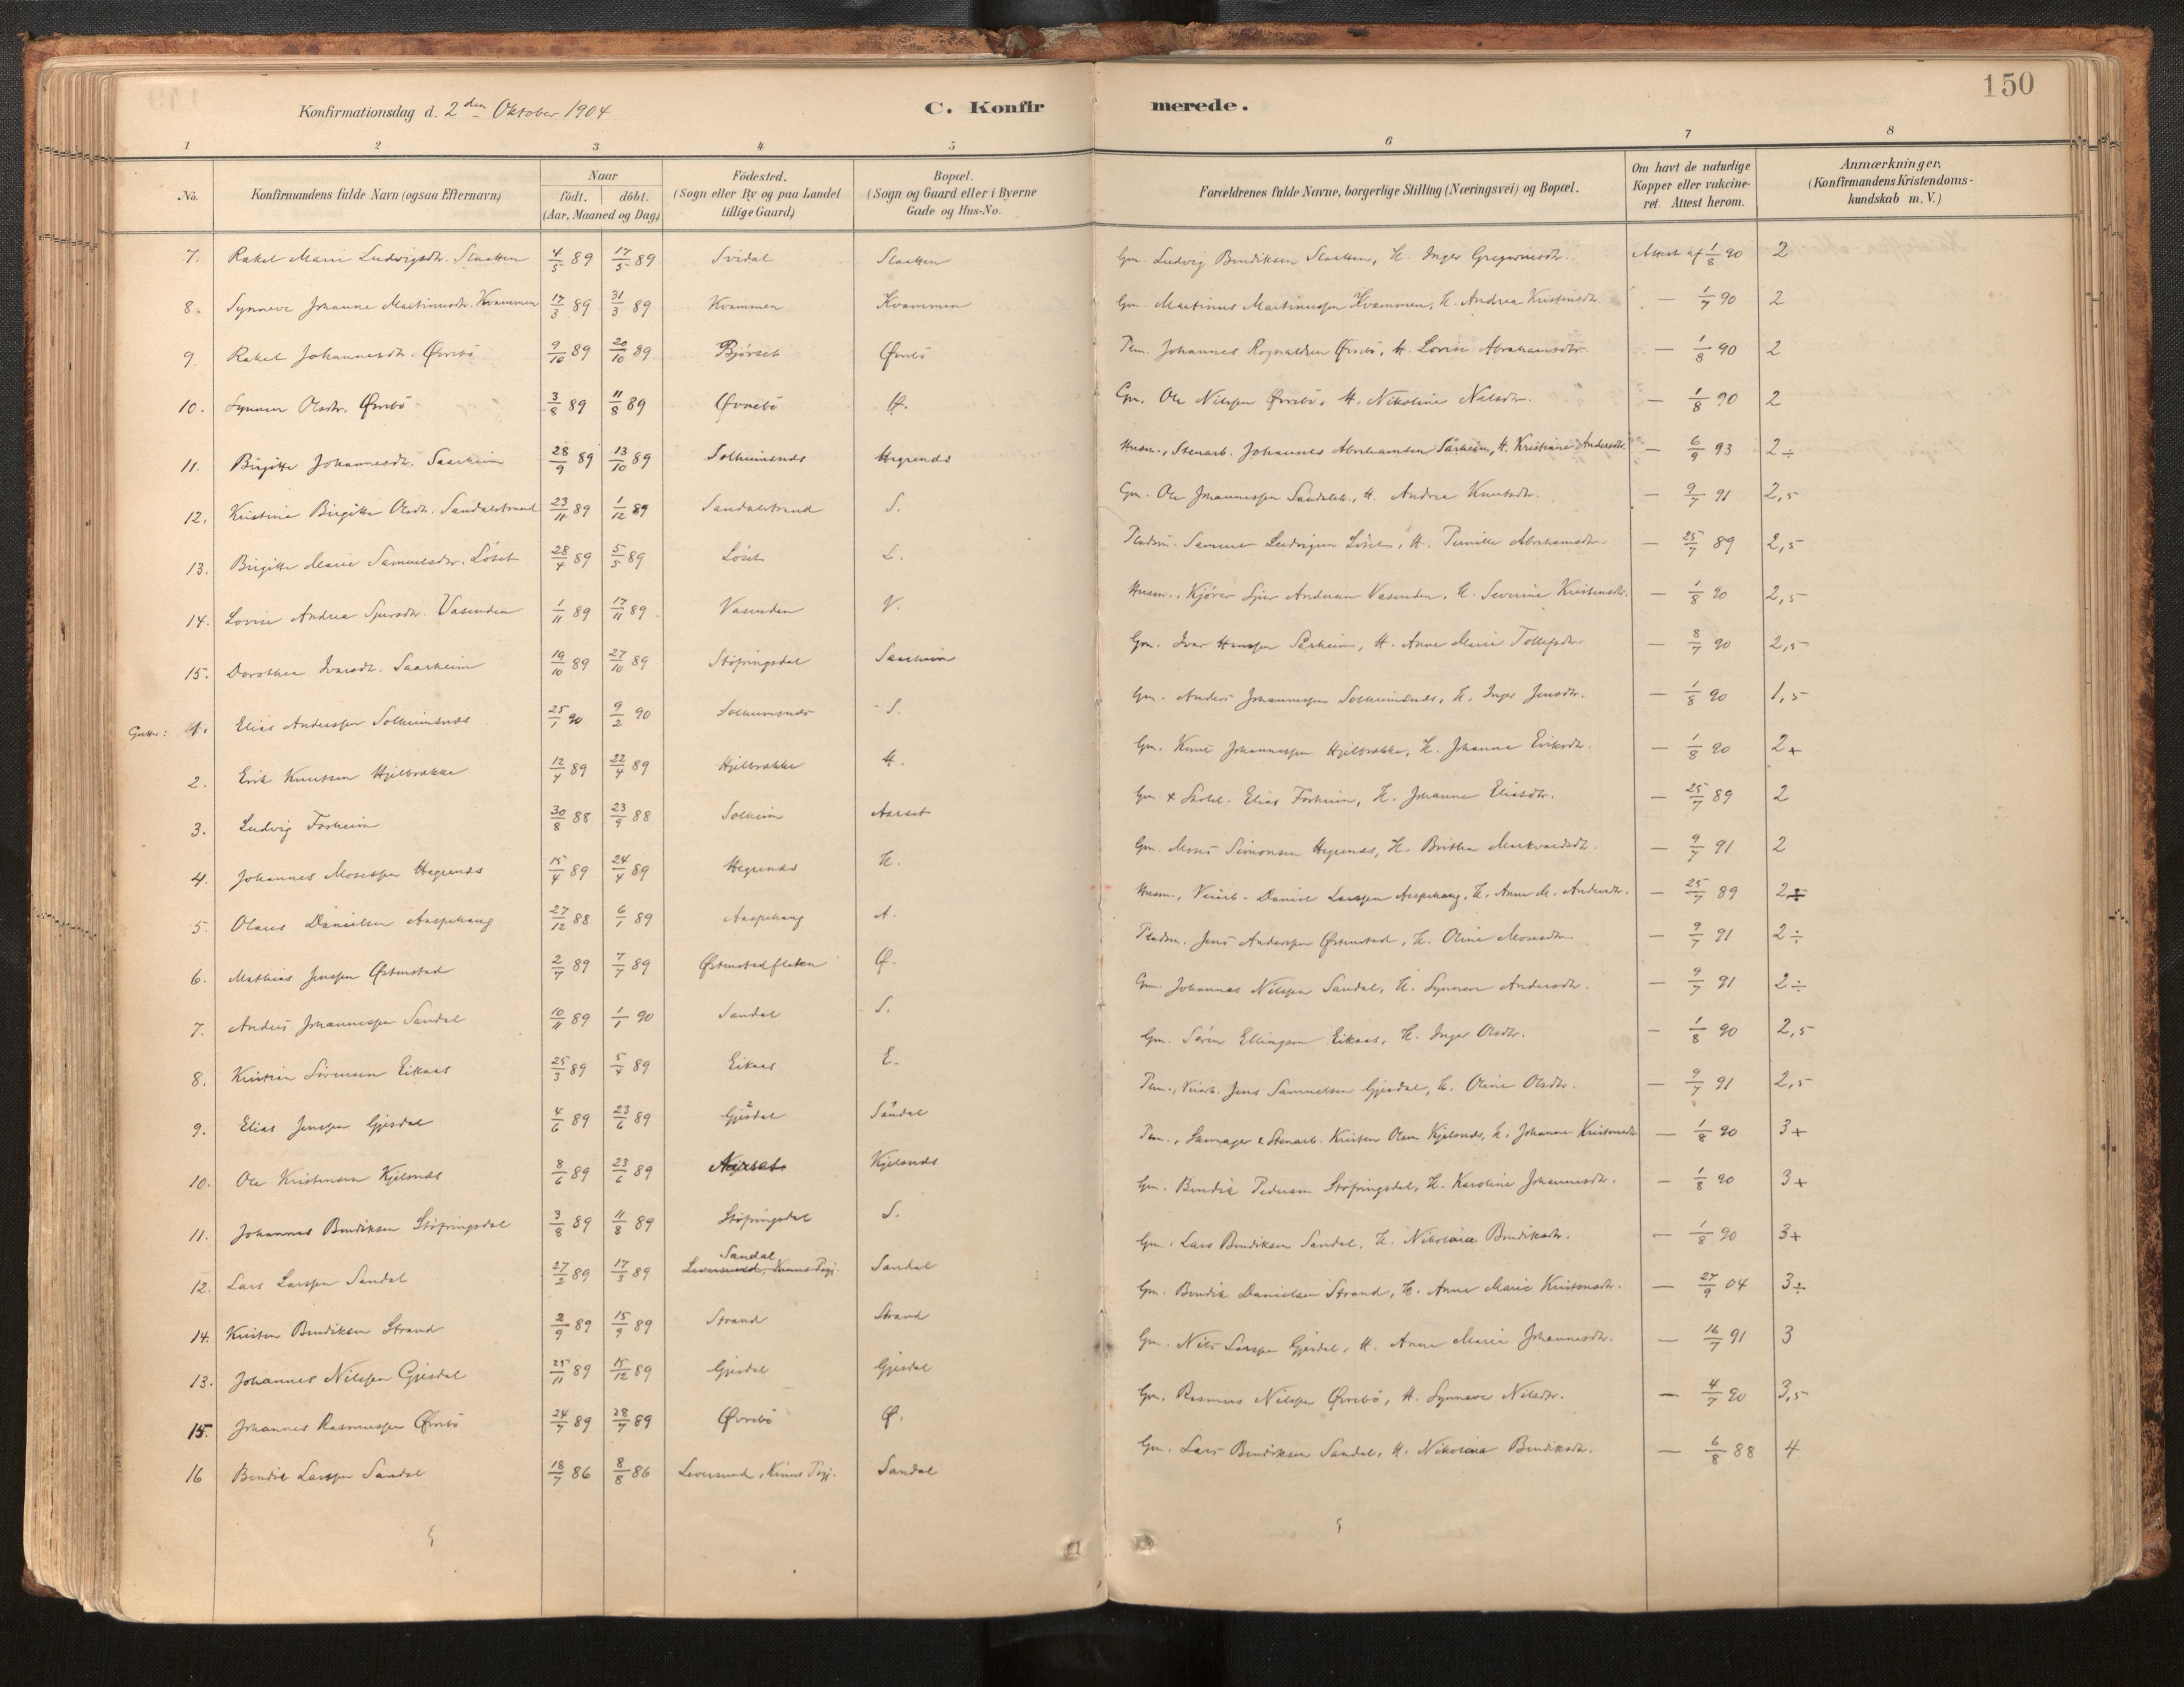 150
Konfirmationsdag d. 2den Oktober 1904 C. Konfir merede.
1 2 3 4 5 6 7 8
No. Konfirmandens fulde Navn (ogsaa Efternavn) Naar født, døbt. (Aar, Maaned og Dag) Födested. (Sogn eller By og paa Landet tillige Gaard) Bopæl. (Sogn og Gaard eller i Byerne Gade og Hus-No. Forældrenes fulde Navne, borgerlige Stilling (Næringsvei) og Bopæl. Om havt de naturlige Kopper eller vakcineret. Attest herom. Anmærkninger. (Konfirmandens Kristendomskundskab m. V.)
7. Rakel Marie Ludvigsdtr. Slaatten 4/5 89 17/5 89 Svidal Slaatten Gm. Ludvig Bendiksen Slaatten, H. Inger Gregoriusdtr. Attest af 1/8 90 2
8. Synneve Johanne Martinusdtr. Kvammen 17/3 89 31/3 89 Kvammen Kvammen Gm. Martinus Martinussen Kvammen, H. Andrea Kristensdtr. — 1/7 90 2
9. Rakel Johannesdtr. Øvrebö 9/10 89 20/10 89 Bjørset Øvrebö Johannes Rognaldsen Øvrebö, H. Lovise Abrahamsdtr. — 1/8 90 2
10. Synneve Olsdtr. Øvrebö 3/8 89 11/8 89 Øvrebö Ø. Gm. Ole Nilssen Øvrebö, H. Nikoline Nilsdtr. — 1/8 90 2
11. Birgitte Johannesdtr. Saarheim 28/9 89 13/10 89 Solheimsnes Hegrenes Husm., Stenarb. Johannes Abrahamsen Sårheim, H. Kristiane Andersdtr. — 6/9 93 2÷
12. Kristine Birgitte Olsdtr. Sandalstrand 23/11 89 1/12 89 Sandalstrand S. Gm. Ole Johannessen Sandalstr., H. Andrea Knutsdtr. — 9/7 91 2,5
13. Birgitte Marie Samuelsdtr. Löset 28/4 89 5/5 89 Löset L. Pladsm. Samuel Ludvigsen Löset, H. Pernille Abrahamsdtr. — 25/7 89 2,5
14. Lovise Andrea Sjursdtr. Vasenden 1/11 89 17/11 89 Vasenden V. Husm., Kjører Sjur Andersen Vasenden, H. Severine Kristensdtr. — 1/8 90 2,5
15. Dorothea Ivarsdtr. Saarheim 19/10 89 27/10 89 Støfringsdal Saarheim Gm. Ivar Hanssen Sårheim, H. Anne Marie Tollefsdtr. — 8/7 90 2,5
Gutter: 1. Elias Anderssen Solheimsnes 25/1 90 9/2 90 Solheimsnes S. Gm. Anders Johannessen Solheimsnes, H. Inger Jensdtr. — 1/8 90 1,5
2. Erik Knutsen Hjelbrekke 12/4 89 22/4 89 Hjelbrekke H. Gm. Knut Johannessen Hjelbrekke, H. Johanne Eriksdtr. — 1/8 90 2+
3. Ludvig Forheim 30/8 88 23/9 88 Solheim Aarset Gm. & Skolel. Elias Forheim, H. Johanne Eliasdtr. — 25/7 89 2
4. Johannes Mosessen Hegrenes 15/4 89 24/4 89 Hegrenes H. Gm. Moses Simonsen Hegrenes, H. Brithe Markvardsdtr. — 9/7 91 2
5. Olaus Danielsen Aaspehaug 27/12 88 6/1 89 Aaspehaug A. Husm., Veiarb. Daniel Larssen Aaspehaug, H. Anne M. Andersdtr. — 25/7 89 2÷
6. Mathias Jenssen Østenstad 2/7 89 7/7 89 Østenstadfleten Ø. Pladsm. Jens Anderssen Østenstad, H. Oline Mosesdtr. — 9/7 91 2÷
7. Anders Johannessen Sandal 10/11 89 1/1 90 Sandal S. Gm. Johannes Nilssen Sandal, H. Synneve Andersdtr. — 9/7 91 2÷
8. Kristen Sörensen Eikaas 25/3 89 5/4 89 Eikaas E. Gm. Sören Ellingsen Eikaas, H. Inger Olsdtr. — 1/8 90 2,5
9. Elias Jenssen Gjesdal 4/6 89 23/6 89 Gjesdal 2 Sandal 1 Veiarb. Jens Samuelsen Gjesdal, H. Oline Olsdtr. — 9/7 91 2,5
10. Ole Kristensen Kjelsnes 8/6 89 23/6 89 Aarset Kjelsnes Skomager & Stenarb. Kristen Olsen Kjelsnes, H. Johanne Kristensdtr. — 1/8 90 3+
11. Johannes Bendiksen Støfringsdal 3/8 89 11/8 89 Støfringsdal S. Gm. Bendik Pedersen Støfringsdal, H. Karoline Johannesdtr. — 1/8 90 3+
12. Lars Larssen Sandal 27/2 89 17/3 89 Sandal Leversund, Kinns Prgj. Sandal Gm. Lars Bendiksen Sandal, H. Nikolaia Bendiksdtr. — 1/8 90 3+
14. Kristen Bendiksen Strand 2/9 89 15/9 89 Strand Strand Gm. Bendik Danielsen Strand, H. Anne Marie Kristensdtr. — 27/9 04 3÷
13. Johannes Nilssen Gjesdal 25/11 89 15/12 89 Gjesdal Gjesdal Gm. Nils Larssen Gjesdal, H. Anne Marie Johannesdtr. — 16/7 91 3
15. Johannes Rasmussen Øvrebö 24/7 89 28/7 89 Øvrebö Ø. Gm. Rasmus Nilssen Øvrebö, H. Synneve Nilsdtr. — 4/7 90 3,5
16 Bendik Larssen Sandal 18/7 86 8/8 86 Leversund, Kinns Prgj. Sandal Gm. Lars Bendiksen Sandal, H. Nikolaia Bendiksdtr. — 6/8 88 4